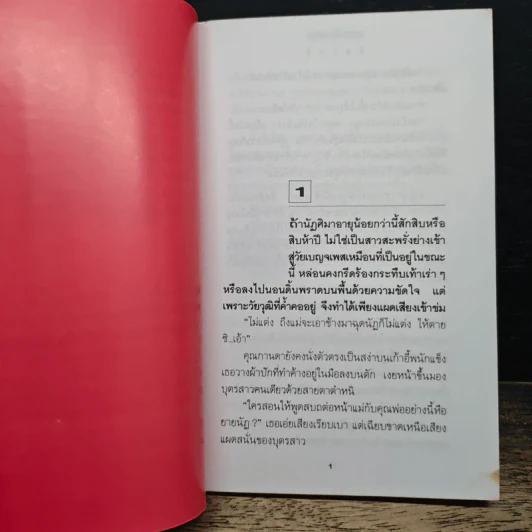 1
ถ้านัฏศิมาอายุน้อยกว่านี้สักสิบหรือ
สิบห้าปี ไม่ใช่เป็นสาวสะพรั่งย่างเข้า
สู่วัยเบญจเพสเหมือนที่เป็นอยู่ในขณะ
นี้ หล่อนคงกรีดร้องกระทืบเท้าเร่า ๆ
หรือลงไปนอนดิ้นพราดบนพื้นด้วยความขัดใจ แต่
เพราะวัยวุฒิที่ค้ำคออยู่ จึงทำได้เพียงแผดเสียงเข้าข่ม
“ไม่แต่ง ถึงแม่จะเอาช้างมาฉุดนัฏก็ไม่แต่ง ให้ตาย
ซิ..เอ้า”
คุณกานดายังคงนั่งตัวตรงเป็นสง่าบนเก้าอี้พนักแข็ง
เธอวางผ้าปักที่ทำค้างอยู่ในมือลงบนตัก เงยหน้าขึ้นมอง
บุตรสาวคนเดียวด้วยสายตาตำหนิ
“ใครสอนให้พูดสบถต่อหน้าแม่กับคุณพ่ออย่างนี้หือ
ยายนัฏ?” เธอเอ่ยเสียงเรียบเบา แต่เฉียบขาดเหนือเสียง
แผดสนั่นของบุตรสาว
1